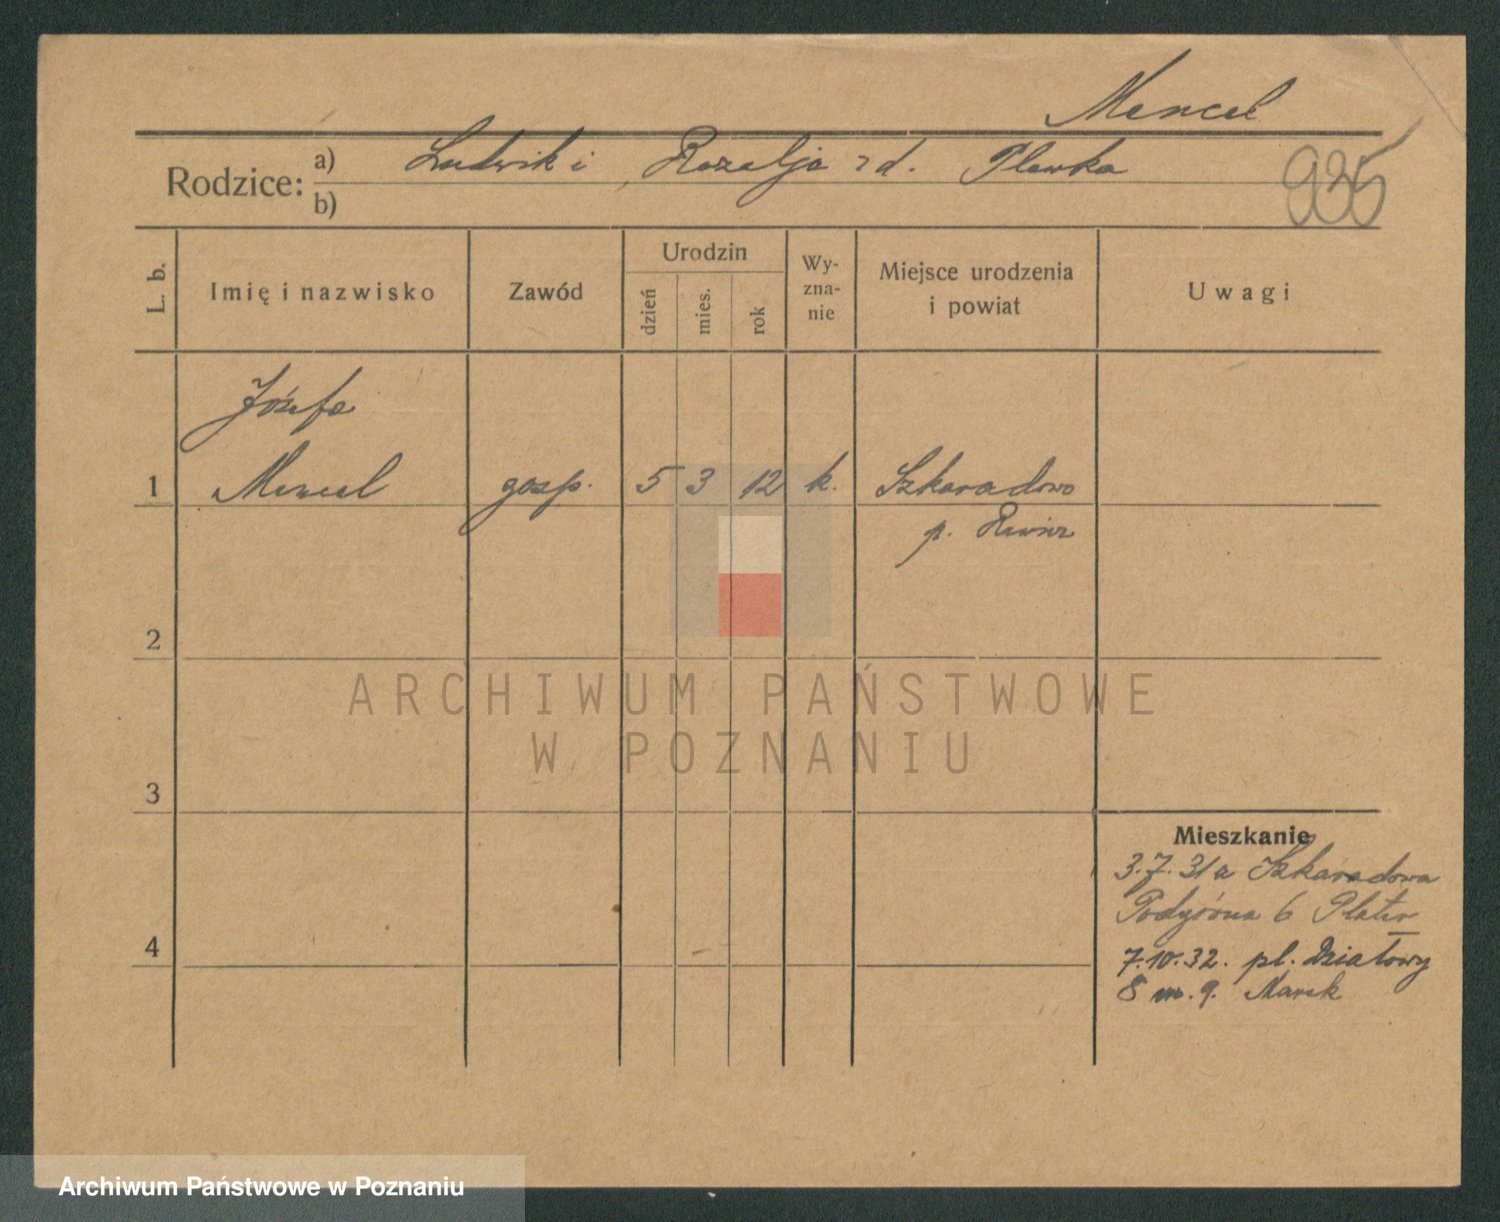 Mencel
Rodzice: a) Ludwik i Rozalja zd. Plewka
b)
935
L. b.
Imię i nazwisko
Zawód
Urodzin
dzień
mies.
rok
Wy-
zna-
nie
Miejsce urodzenia
i powiat
Uwagi
Józefa
1 Mencel gosp. 5 3 12 k. Szkaradowo
p. Rawicz
2
3
4
Mieszkanie
3.7.31 a Szkaradowa
6 Plater
7.10.32. pl. Działowy
8 m. 9. Marek
ARCHIWUM PAŃSTWOWE
W POZNANIU
Archiwum Państwowe w Poznaniu